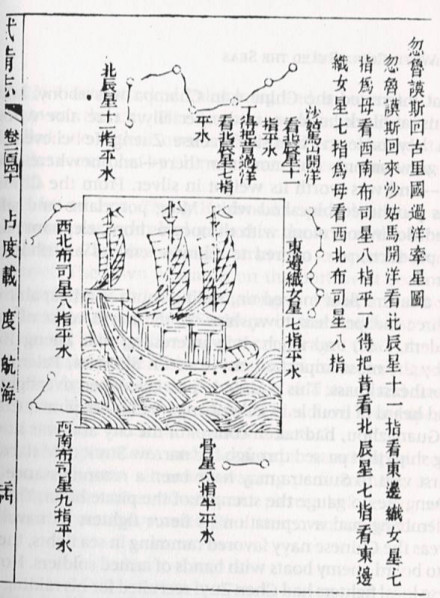 忽魯謨斯回古里國過洋牽星圖
忽魯謨斯來沙姑馬開洋看北辰星十一指看東邊織女星七
指為母看西南布司星八指平丁得把昔看北辰星七指看東邊
織女星七指為母看西北布司星八指
沙姑馬山開洋
看北辰星十
指平水
丁得把昔過洋
看北辰星七指
平水
北辰星十一指平水
東邊織女星七指平水
西北布司星八指平水
西南布司星九指平水
骨星八指半平水
武備志
卷二百四十
占度載
度
航海